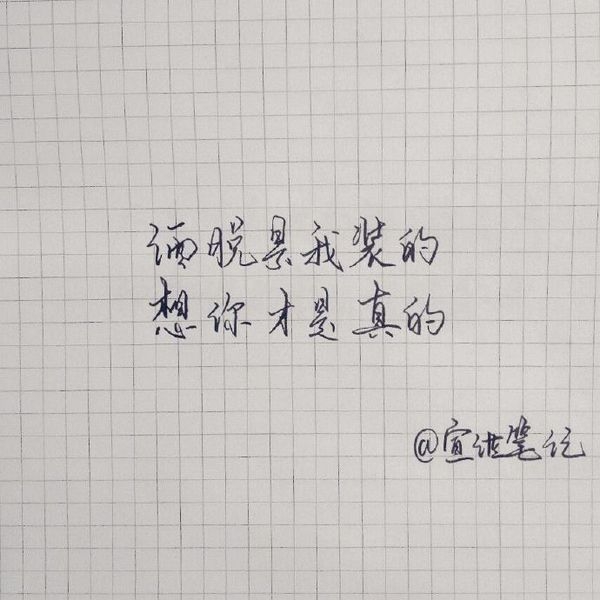 洒脱是我装的
想你才是真的
@宣纸笔记